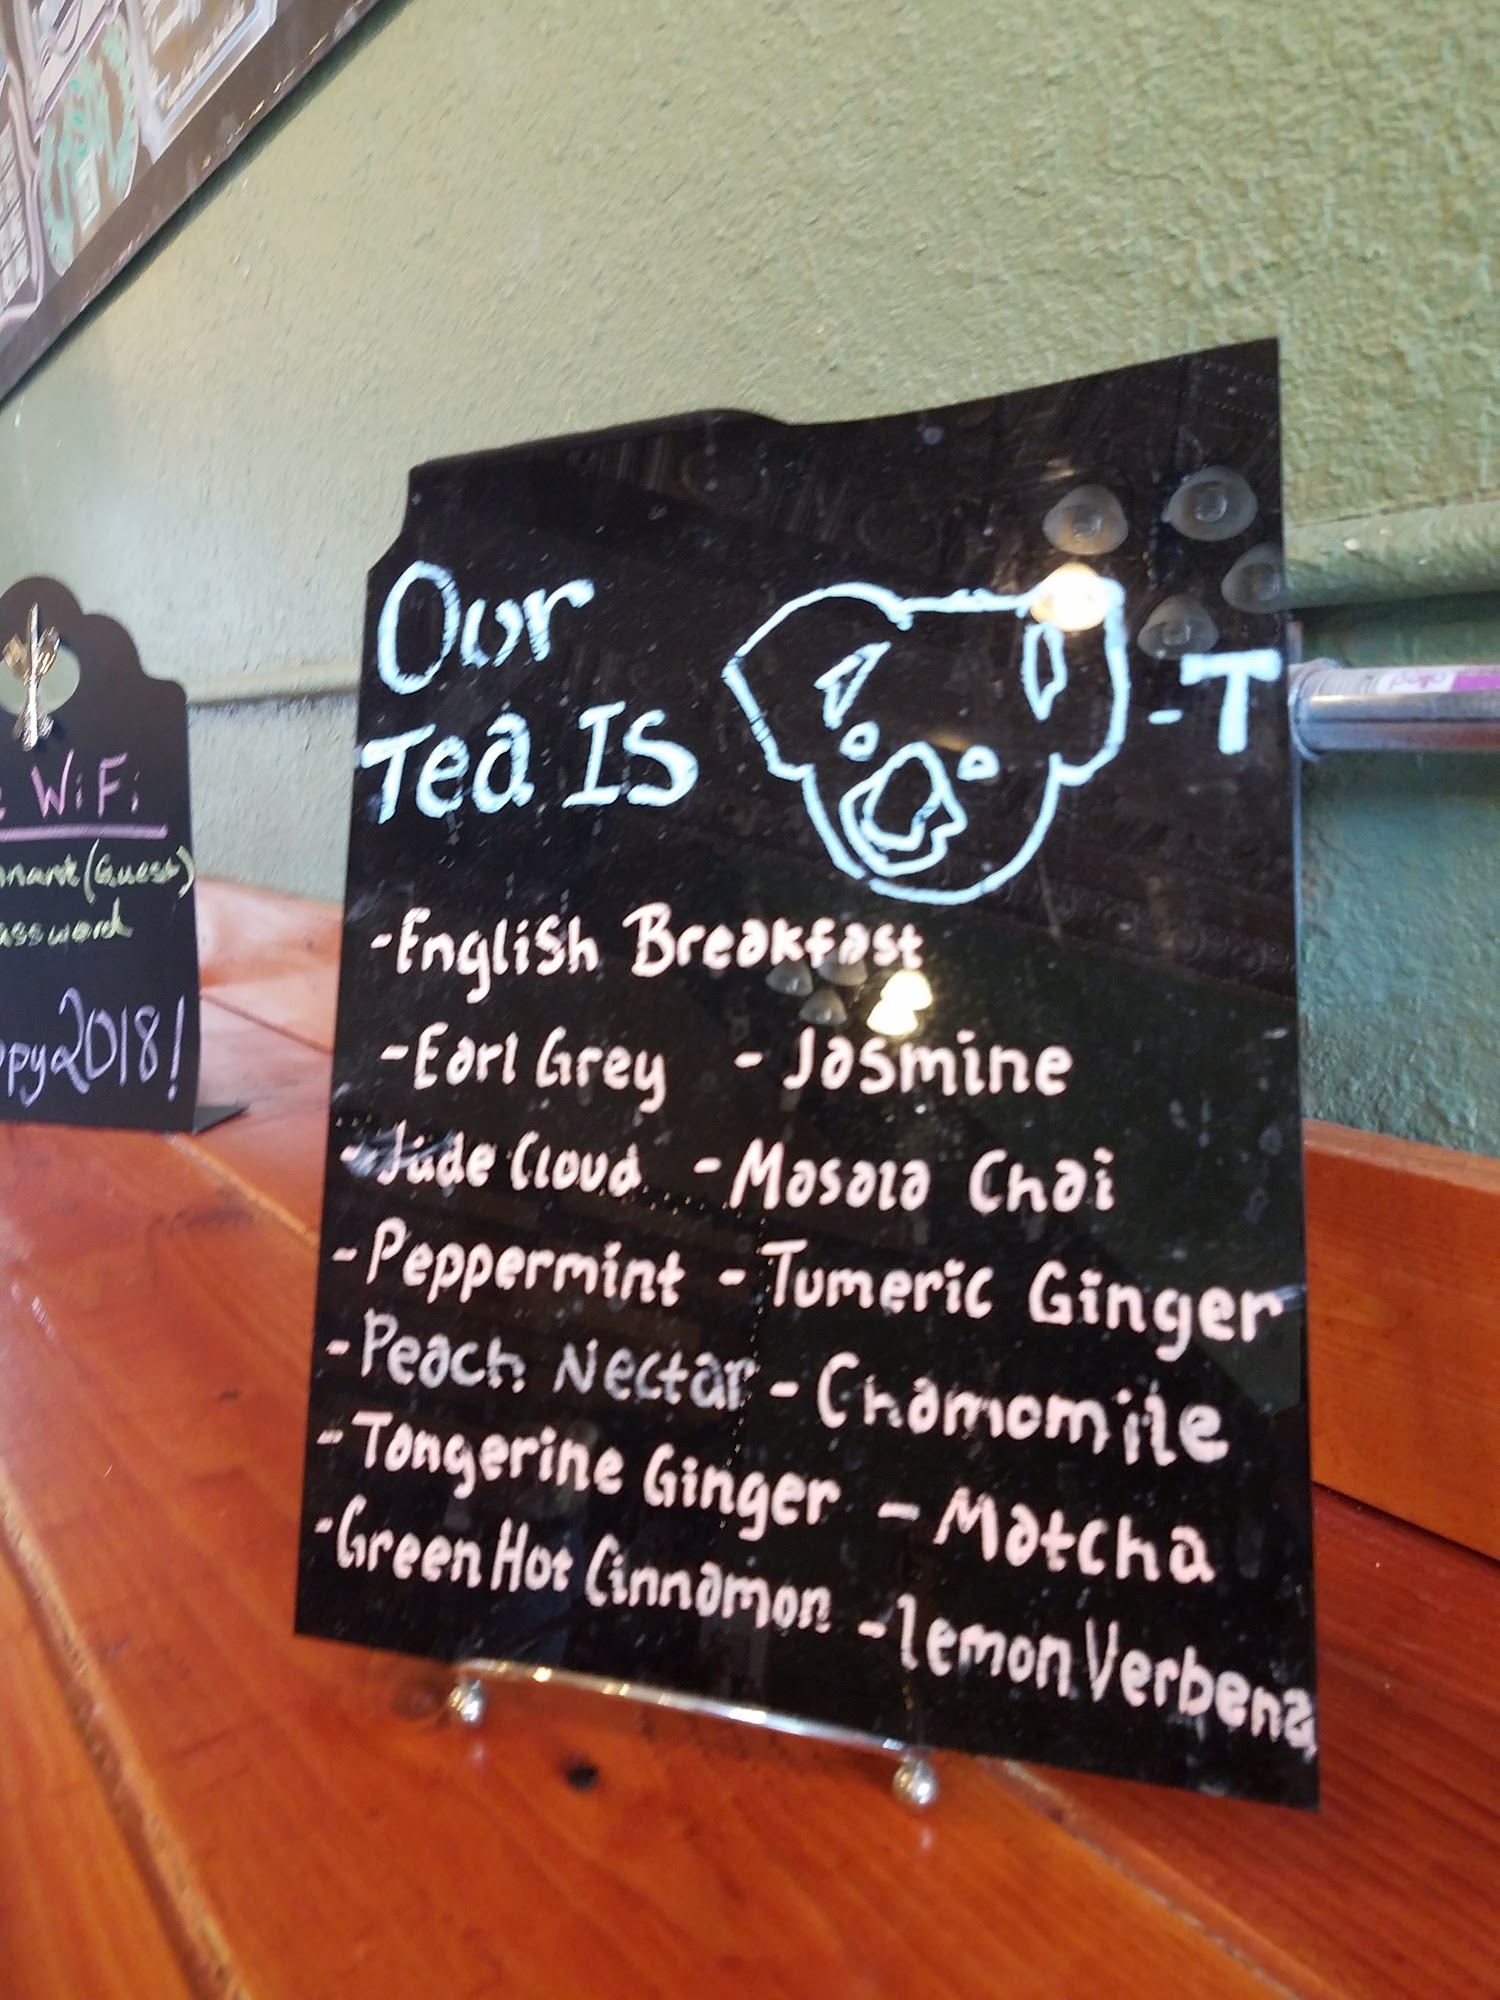 WiFi
(Guest)
2018!
Our
Tea IS
-T
-English Breakfast
-Earl Grey - Jasmine
-Jade Cloud - Masala Chai
-Peppermint - Tumeric Ginger
-Peach Nectar - Chamomile
-Tangerine Ginger - Matcha
-Green Hot Cinnamon -Lemon Verbena